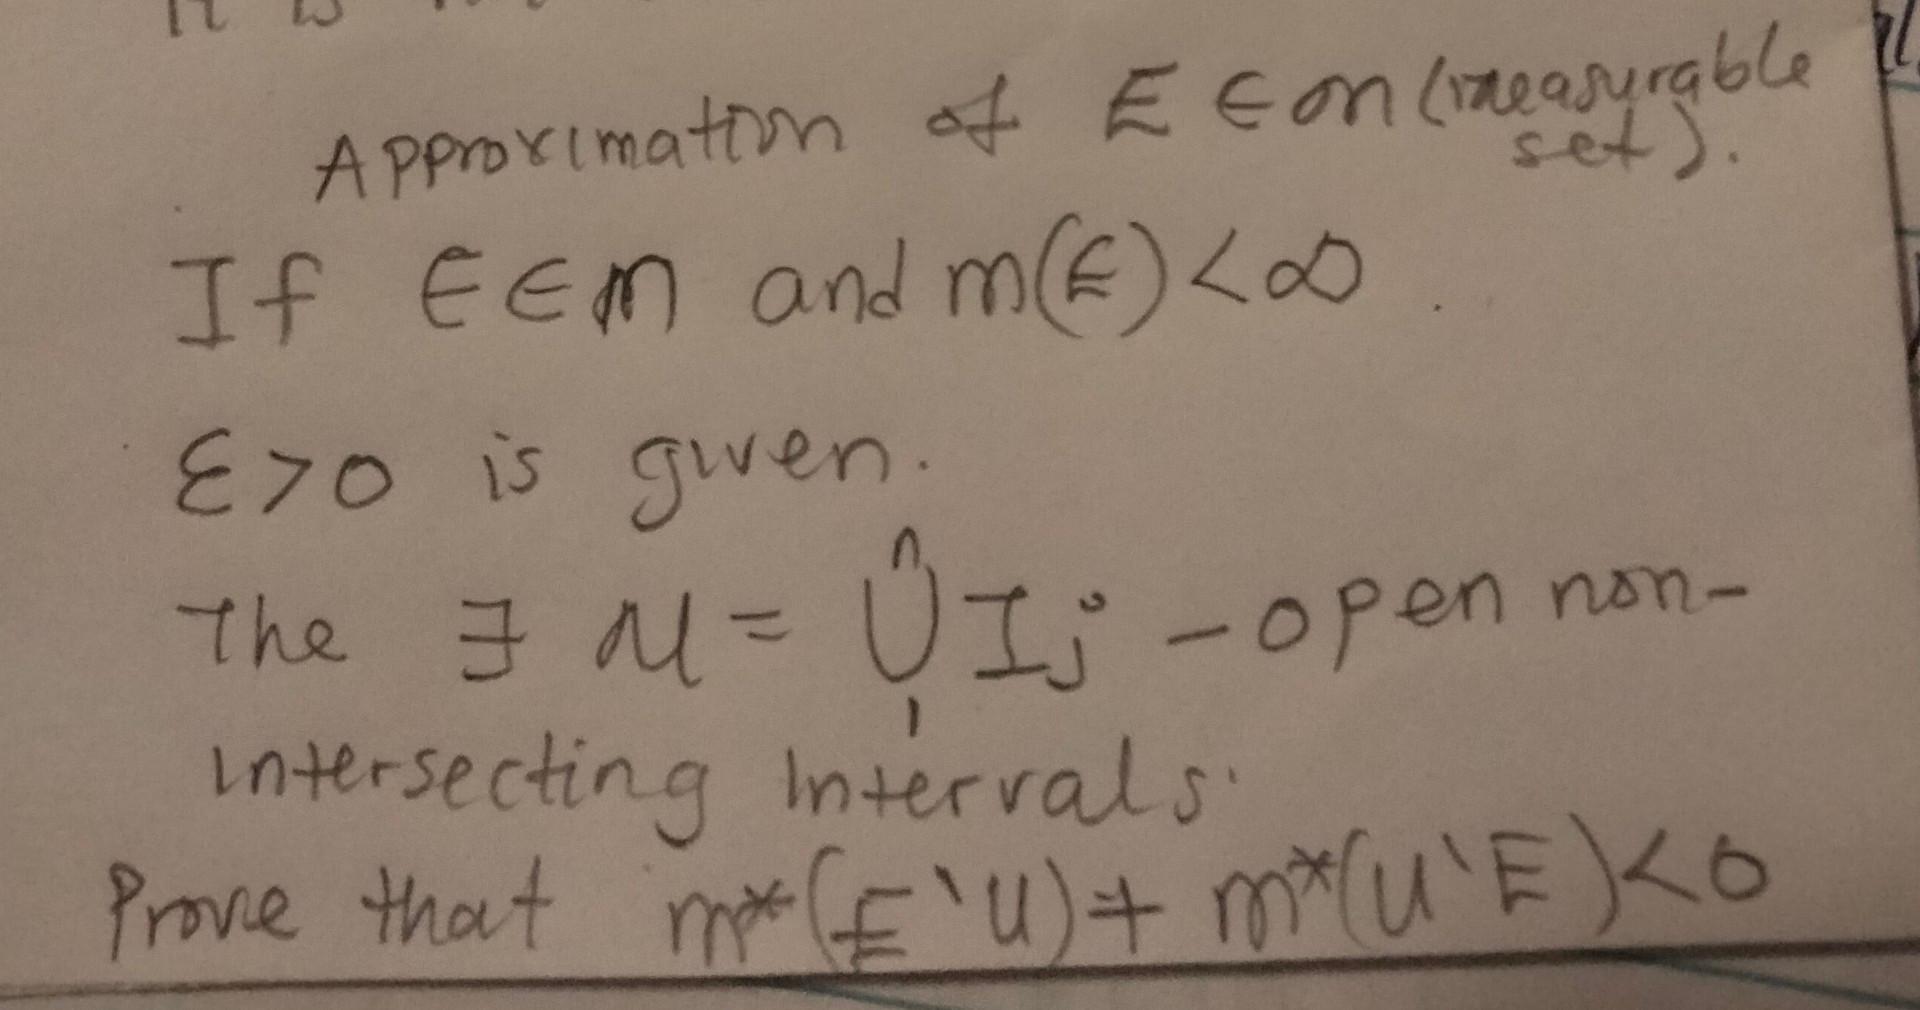 It is
Approximation of E ∈ m (measurable
set).
If E ∈ m and m(E) < ∞.
ε > 0 is given.
The ∃ U = ⋃₁ⁿ Iⱼ - open non-
intersecting intervals.
Prove that m*(E \ U) + m*(U \ E) < 0